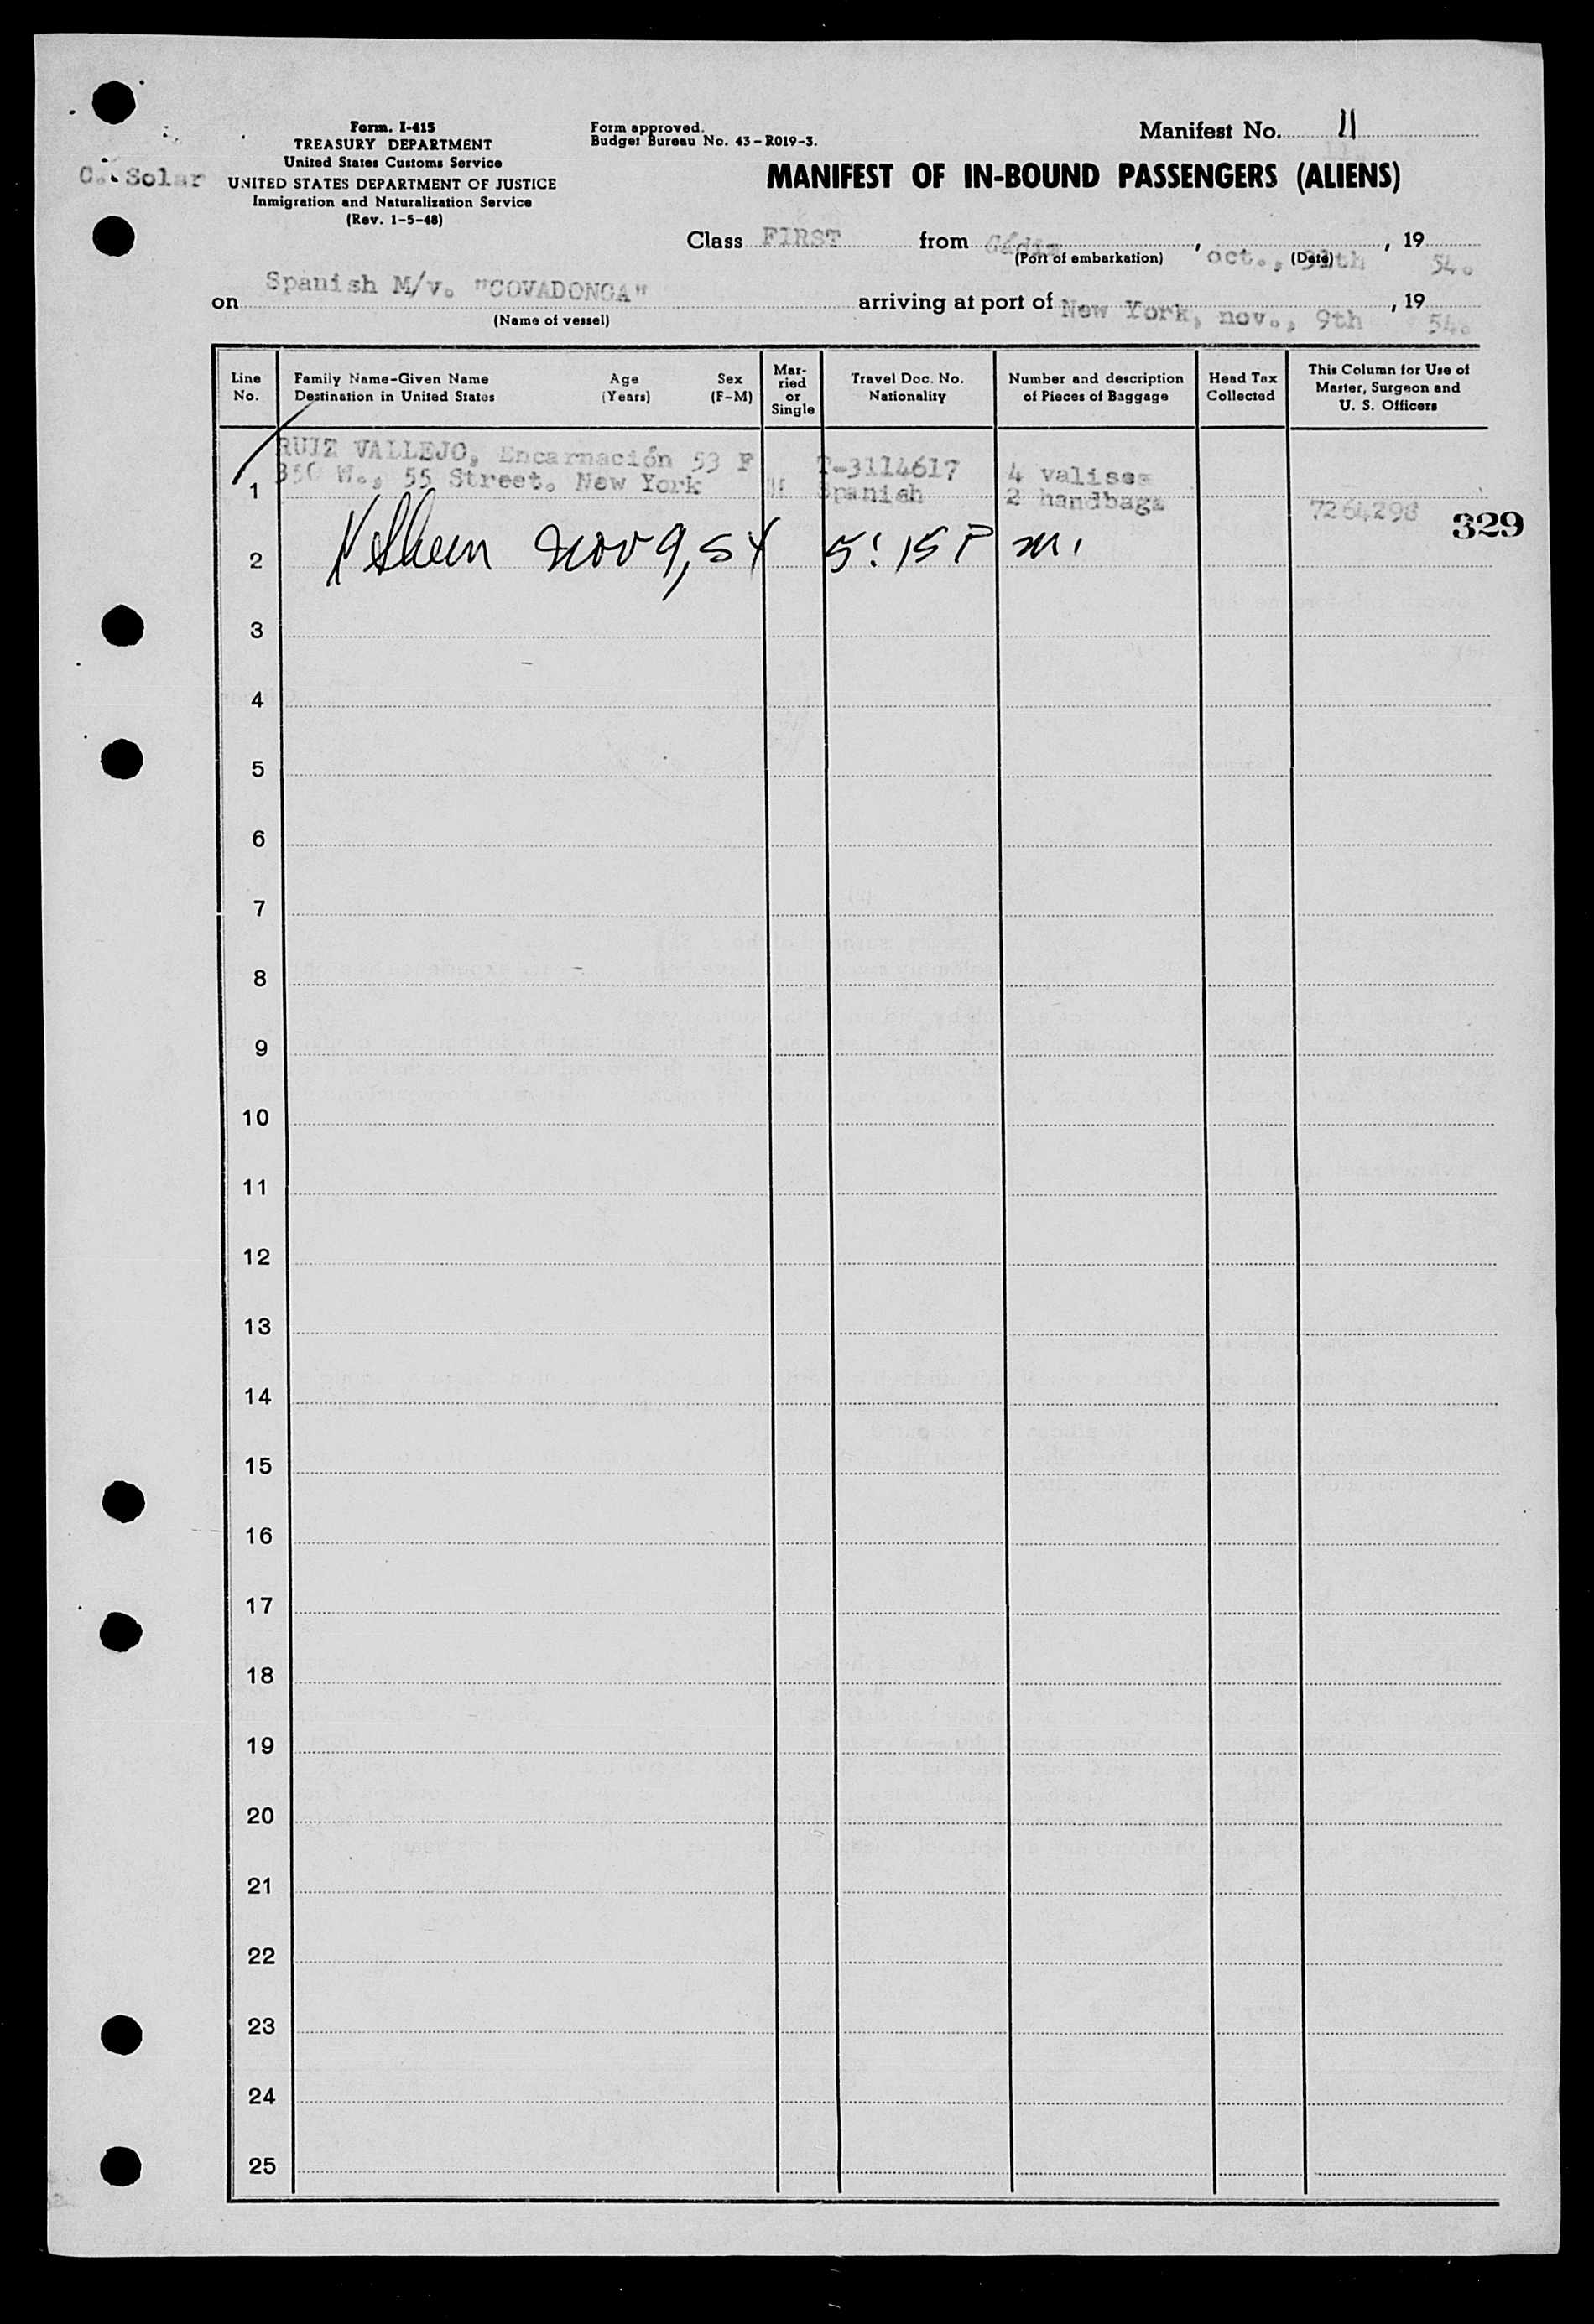 Form. I-415
TREASURY DEPARTMENT
United States Customs Service
UNITED STATES DEPARTMENT OF JUSTICE
Inmigration and Naturalization Service
(Rev. 1-5-48)
C. Solar
Form approved.
Budget Bureau No. 43-R019-3.
Manifest No. 11
MANIFEST OF IN-BOUND PASSENGERS (ALIENS)
Class FIRST from Cádiz, oct., 31th, 19 54.
(Port of embarkation) (Date)
on Spanish M/v. "COVADONGA" arriving at port of New York, nov., 9th, 19 54.
(Name of vessel)
Line No.
Family Name-Given Name
Destination in United States
Age (Years)
Sex (F-M)
Mar-
ried
or
Single
Travel Doc. No.
Nationality
Number and description
of Pieces of Baggage
Head Tax
Collected
This Column for Use of
Master, Surgeon and
U. S. Officers
RUIZ VALLEJO, Encarnación 53 F T-3114617 4 valises
1 350 W., 55 Street. New York Spanish 2 handbags 7264298
329
2 Nov 9, 54 5:15 P m.
3
4
5
6
7
8
9
10
11
12
13
14
15
16
17
18
19
20
21
22
23
24
25